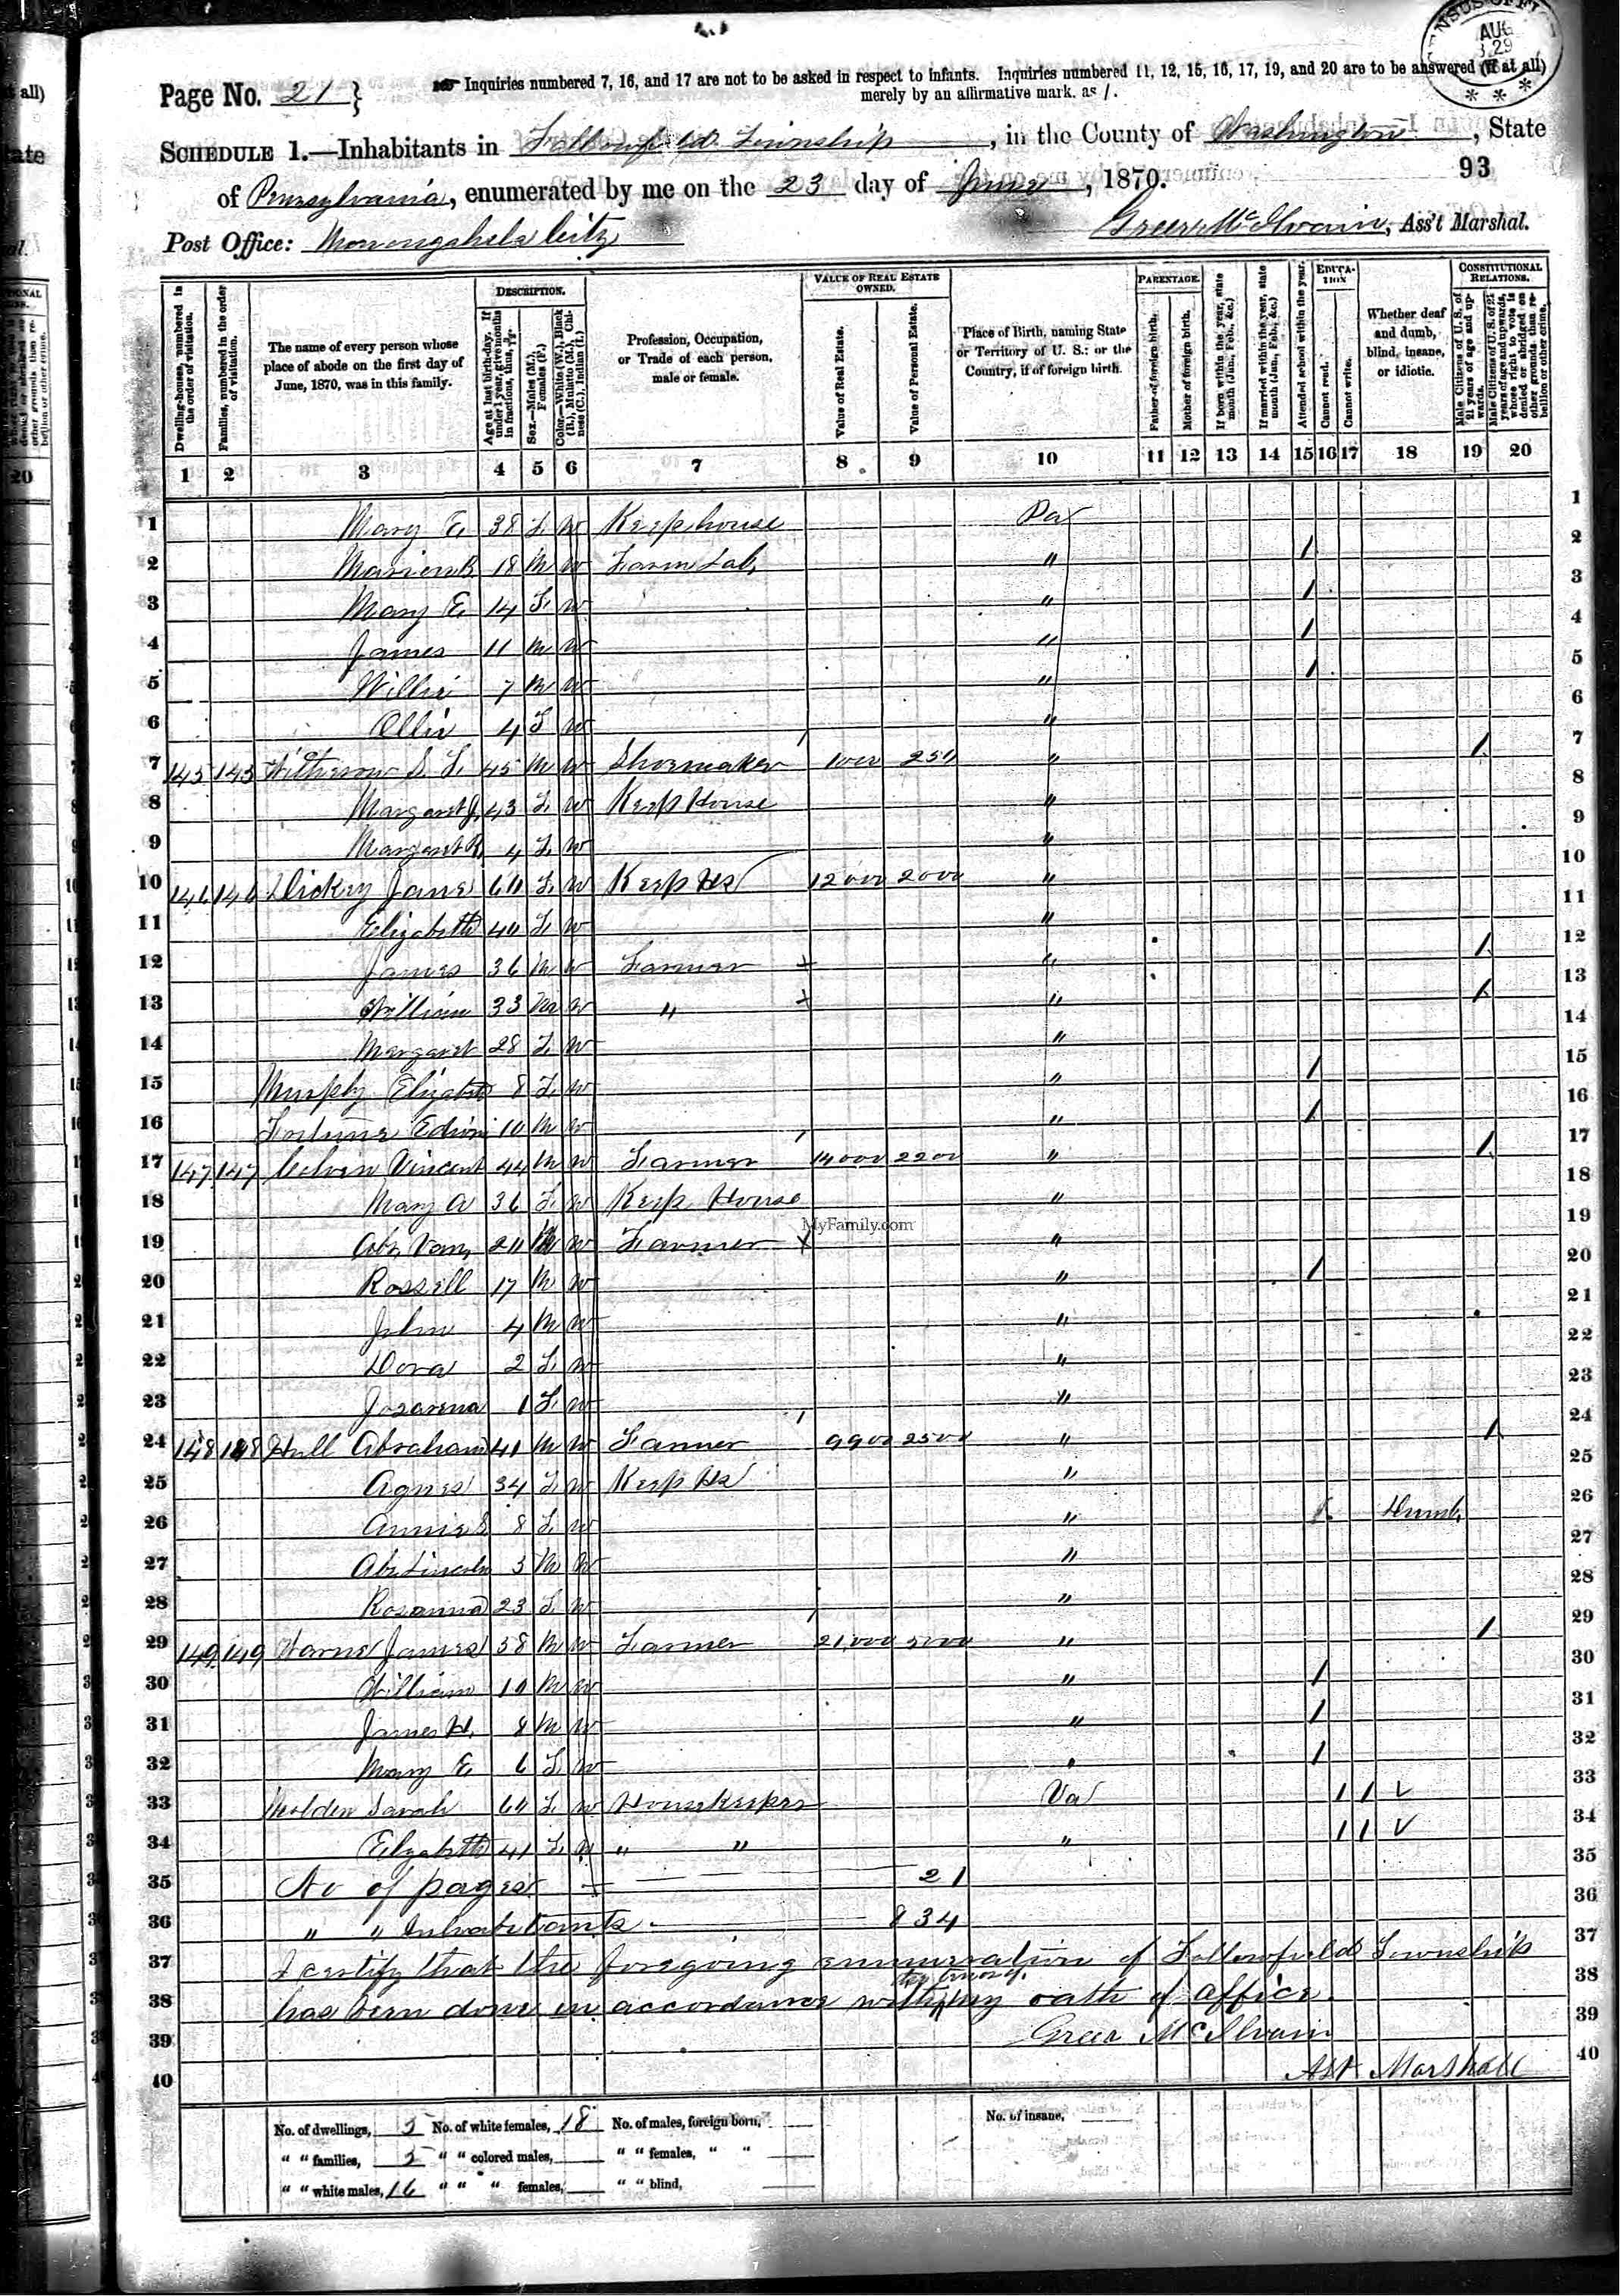 CENSUS OFFICE
AUG
29
Page No. 21
Inquiries numbered 7, 16, and 17 are not to be asked in respect to infants. Inquiries numbered 11, 12, 15, 16, 17, 19, and 20 are to be answered (if at all)
merely by an affirmative mark, as /.
SCHEDULE 1.—Inhabitants in Fallowfield Township, in the County of Washington, State
93
of Pennsylvania, enumerated by me on the 23 day of June, 1870.
Post Office: Monongahela City
Greer McIlvain, Ass't Marshal.
Dwelling-houses, numbered in the order of visitation.
Families, numbered in the order of visitation.
The name of every person whose place of abode on the first day of June, 1870, was in this family.
DESCRIPTION.
Age at last birth-day. If under 1 year, give months in fractions, thus, 3/12.
Sex.—Males (M.), Females (F.)
Color.—White (W.), Black (B.), Mulatto (M.), Chinese (C.), Indian (I.)
Profession, Occupation, or Trade of each person, male or female.
VALUE OF REAL ESTATE OWNED.
Value of Real Estate.
Value of Personal Estate.
Place of Birth, naming State or Territory of U. S.; or the Country, if of foreign birth.
PARENTAGE.
Father of foreign birth.
Mother of foreign birth.
If born within the year, state month (Jan., Feb., &c.)
If married within the year, state month (Jan., Feb., &c.)
Attended school within the year.
EDUCATION
Cannot read.
Cannot write.
Whether deaf and dumb, blind, insane, or idiotic.
CONSTITUTIONAL RELATIONS.
Male Citizens of U. S. of 21 years of age and upwards.
Male Citizens of U. S. of 21 years of age and upwards, whose right to vote is denied or abridged on other grounds than rebellion or other crime.
1 2 3 4 5 6 7 8 9 10 11 12 13 14 15 16 17 18 19 20
1 Mary E 38 F W Keep house Pa 1
2 Marion B 18 M W Farm Lab, " / 2
3 Mary E 14 F W " / 3
4 James 11 M W " / 4
5 Willie 7 M W " / 5
6 Ollie 4 F W " 6
7 145 145 S. F. 45 M W Shoemaker 1000 250 " / 7
8 Margaret J, 43 F W Keep House " 8
9 Margaret R, 4 F W " 9
10 146 146 Dickey Jane 60 F W Keep Hs 12000 2000 " 10
11 Elizabeth 40 F W " 11
12 James 36 M W Farmer " / 12
13 William 33 M W " " / 13
14 Margaret 28 F W " 14
15 Murphy Elizabeth 8 F W " / 15
16 Fortune Edwin 10 M W " / 16
17 147 147 Colvin Vincent 44 M W Farmer 14000 2200 " / 17
18 Mary A 36 F W Keep House " 18
MyFamily.com
19 Abr. Van, 20 M W Farmer " 19
20 Rossell 17 M W " / 20
21 John 4 M W " 21
22 Dora 2 F W " 22
23 1 F W " 23
24 148 148 Hull Abraham 41 M W Farmer 9900 2500 " / 24
25 Agnes 34 F W Keep Hs " 25
26 Annie S 8 F W " / Dumb, 26
27 Abr. Lincoln 3 M W " 27
28 Rosanna 23 F W " 28
29 149 149 Warne James 38 M W Farmer 21,000 5000 " / 29
30 William 10 M W " / 30
31 James H. 8 M W " / 31
32 Mary E 6 F W " / 32
33 Holden Sarah 60 F W Housekeeper Va / / 33
34 Elizabeth 41 F W " " " / / 34
35 No of pages 21 35
36 " " Inhabitants 834 36
37 I certify that the foregoing enumeration of Fallowfield Township 37
38 has been done in accordance with my oath of office. 38
39 Greer McIlvain 39
40 Ast Marshall 40
No. of dwellings, 5 No. of white females, 18 No. of males, foreign born, No. of insane,
" " families, 5 " " colored males, " " females, " "
" " white males, 16 " " " females, " " blind,